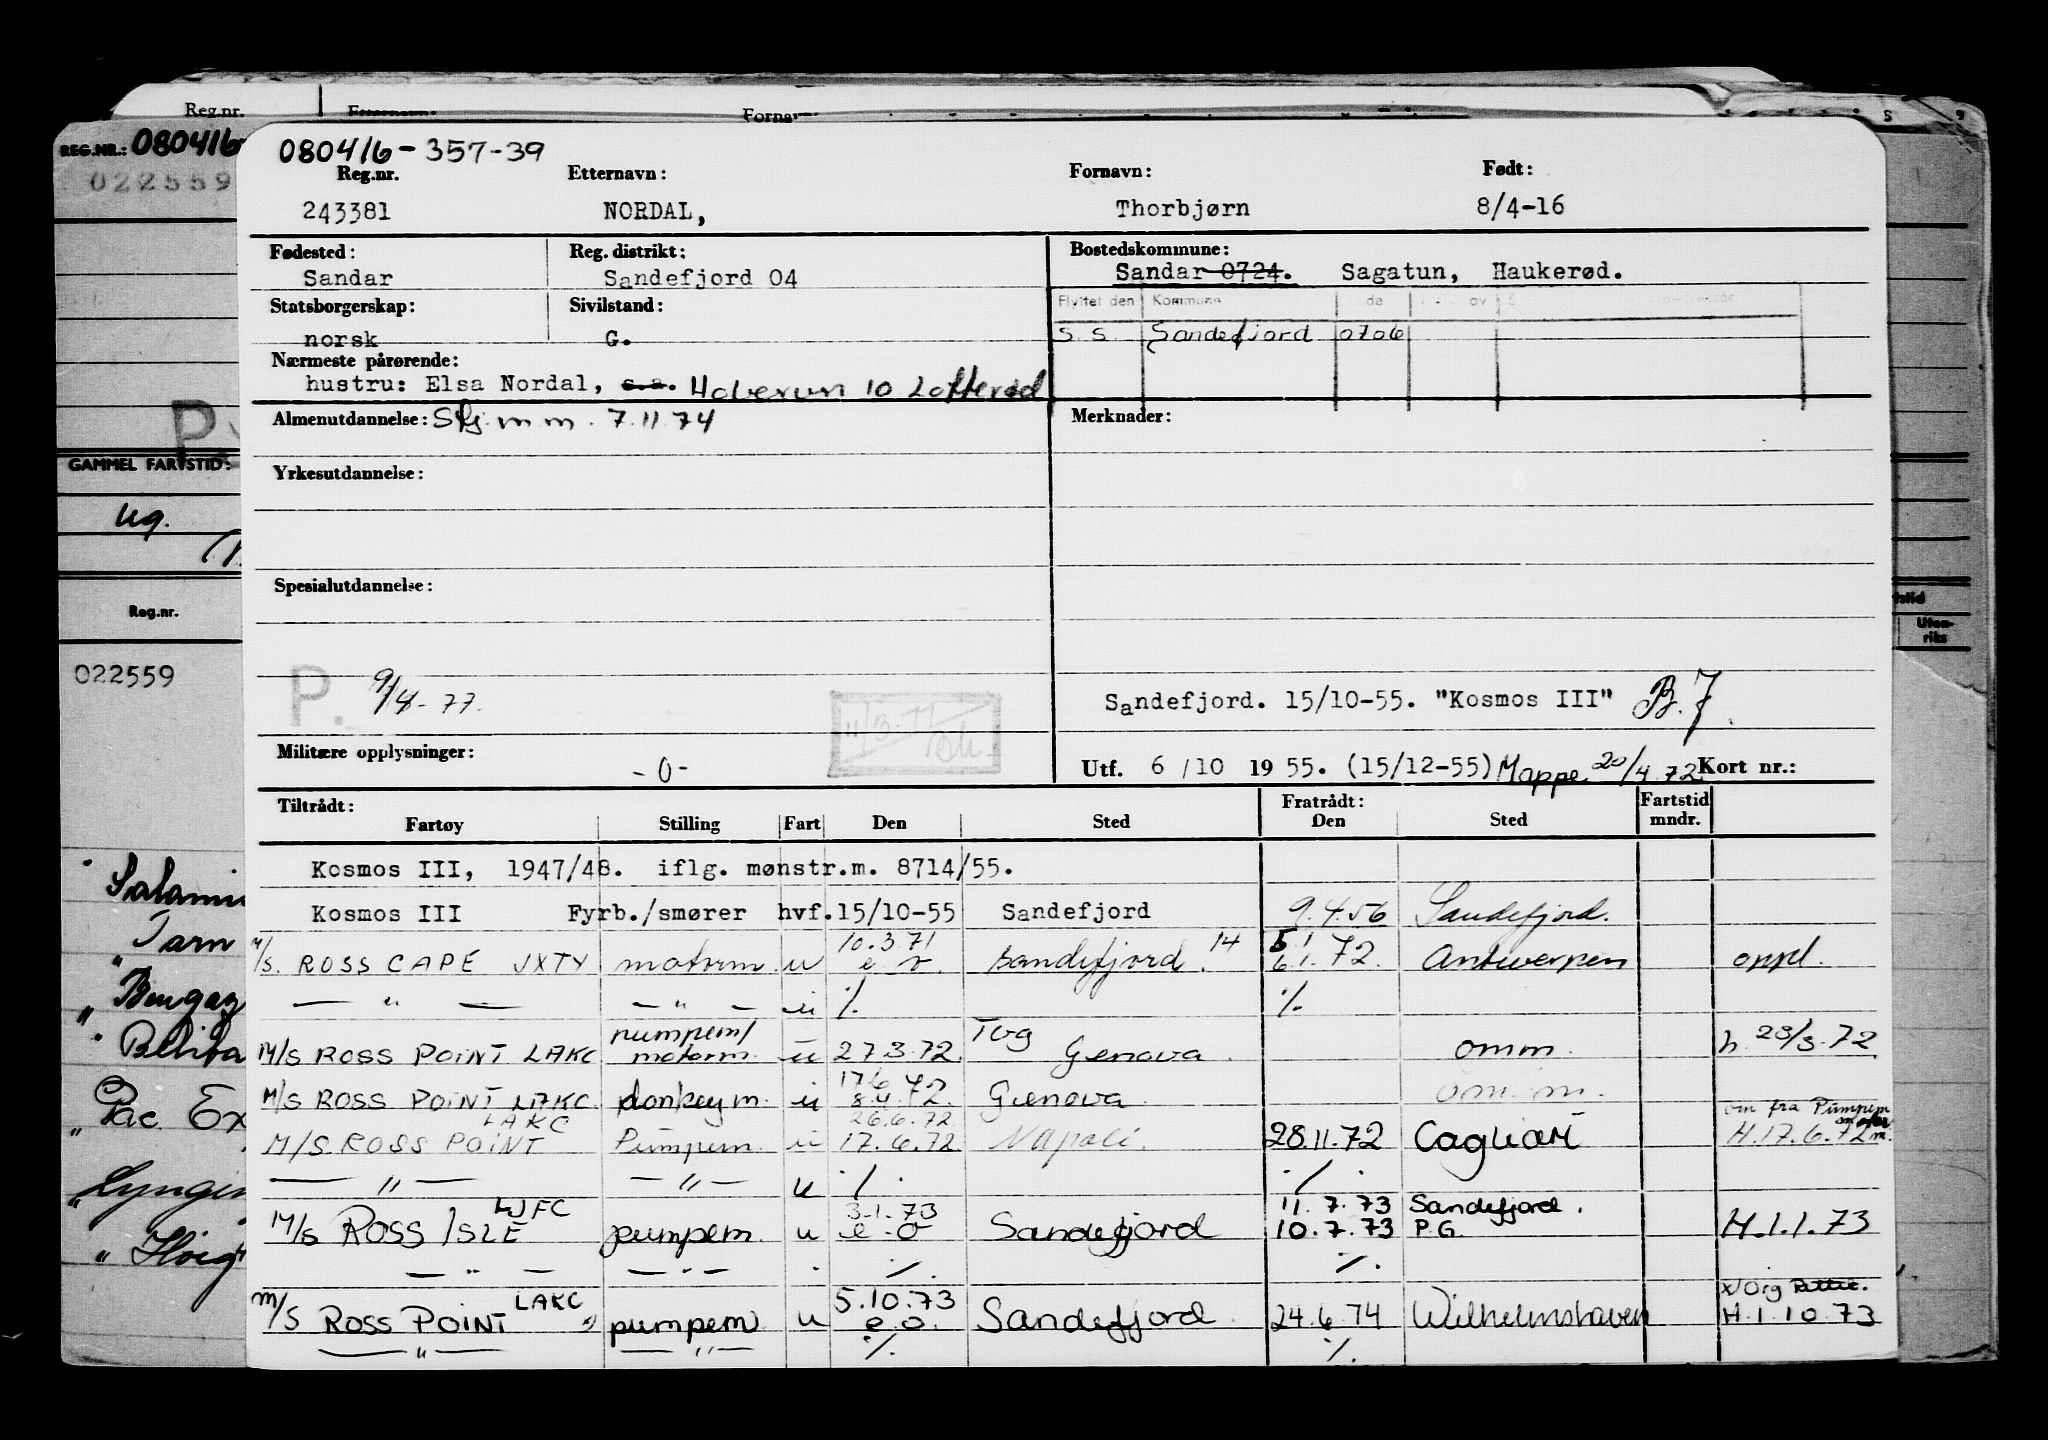 Reg.nr. Etternavn: Fornavn:
REG.NR.: 080416
022559
GAMMEL FARTSTID:
ug.
Reg.nr.
022559
Tarn
Pac. Ex
Uten-
riks
080416-357-39
Reg.nr. Etternavn: Fornavn: Født:
243381 NORDAL, Thorbjørn 8/4-16
Fødested: Reg. distrikt: Bostedskommune:
Sandar Sandefjord 04 Sandar 0724. Sagatun, Haukerød.
Statsborgerskap: Sivilstand: Flyttet den Kommune
norsk G. S.S. Sandefjord 0706
Nærmeste pårørende:
hustru: Elsa Nordal, s.a. Haverun 10 Lofterød
Almenutdannelse: Sfj. m m. 7.11.74 Merknader:
Yrkesutdannelse:
Spesialutdannelse:
P. 9/4-77. Sandefjord. 15/10-55. "Kosmos III" B.7
Militære opplysninger: -0- Utf. 6/10 1955. (15/12-55) Mappe 20/4.72 Kort nr.:
Tiltrådt: Fratrådt: Fartstid
Fartøy Stilling Fart Den Sted Den Sted mndr.
Kosmos III, 1947/48. iflg. mønstr.m. 8714/55.
Kosmos III Fyrb./smører hvf. 15/10-55 Sandefjord 9.4.56 Sandefjord.
10.3.71 14 5.1
M/S. ROSS CAPE JXTY motorm. u e o. Sandefjord. 6.1.72. Antwerpen oppl.
— " — — " — u ·/. ·/.
pumpem/ Tvg
M/S ROSS POINT LAKC motorm. u 27.3.72. Genova omm. h. 28/3.72
17.6.72
M/S ROSS POINT LAKC donkeym. u 8.4.72. Genova om.m.
LAKC 26.6.72 om fra Pumpem
M/S. ROSS POINT Pumpem. u 17.6.72. Napoli. 28.11.72 Cagliari H.17.6.72
— " — — " — u ·/. ·/.
LJFC 3.1.73 11.7.73 Sandefjord.
M/S ROSS ISLE pumpem. u e.o Sandefjord 10.7.73 P.G. H.1.1.73
— " — — " — ·/. ·/.
LAKC 5.10.73
M/S ROSS POINT pumpem u e.o. Sandefjord. 24.6.74 Wilhelmshaven H.1.10.73
— " — — " — ·/. ·/.